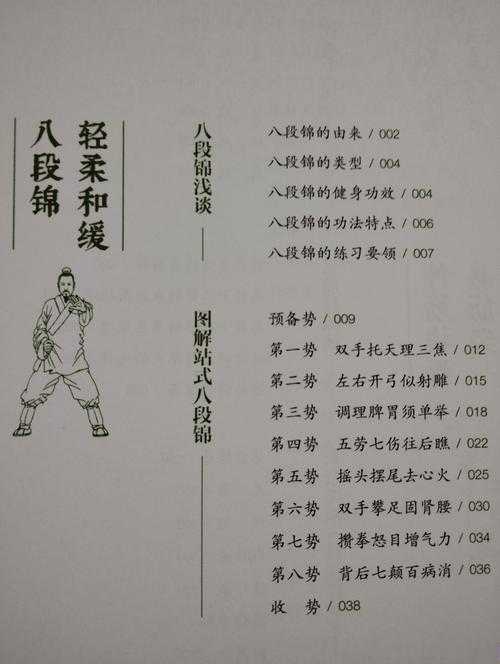 轻柔和缓
八段锦
八段锦浅谈
八段锦的由来 / 002
八段锦的类型 / 004
八段锦的健身功效 / 004
八段锦的功法特点 / 006
八段锦的练习要领 / 007
图解站式八段锦
预备势 / 009
第一势 双手托天理三焦 / 012
第二势 左右开弓似射雕 / 015
第三势 调理脾胃须单举 / 018
第四势 五劳七伤往后瞧 / 022
第五势 摇头摆尾去心火 / 025
第六势 双手攀足固肾腰 / 030
第七势 攒拳怒目增气力 / 034
第八势 背后七颠百病消 / 036
收 势 / 038